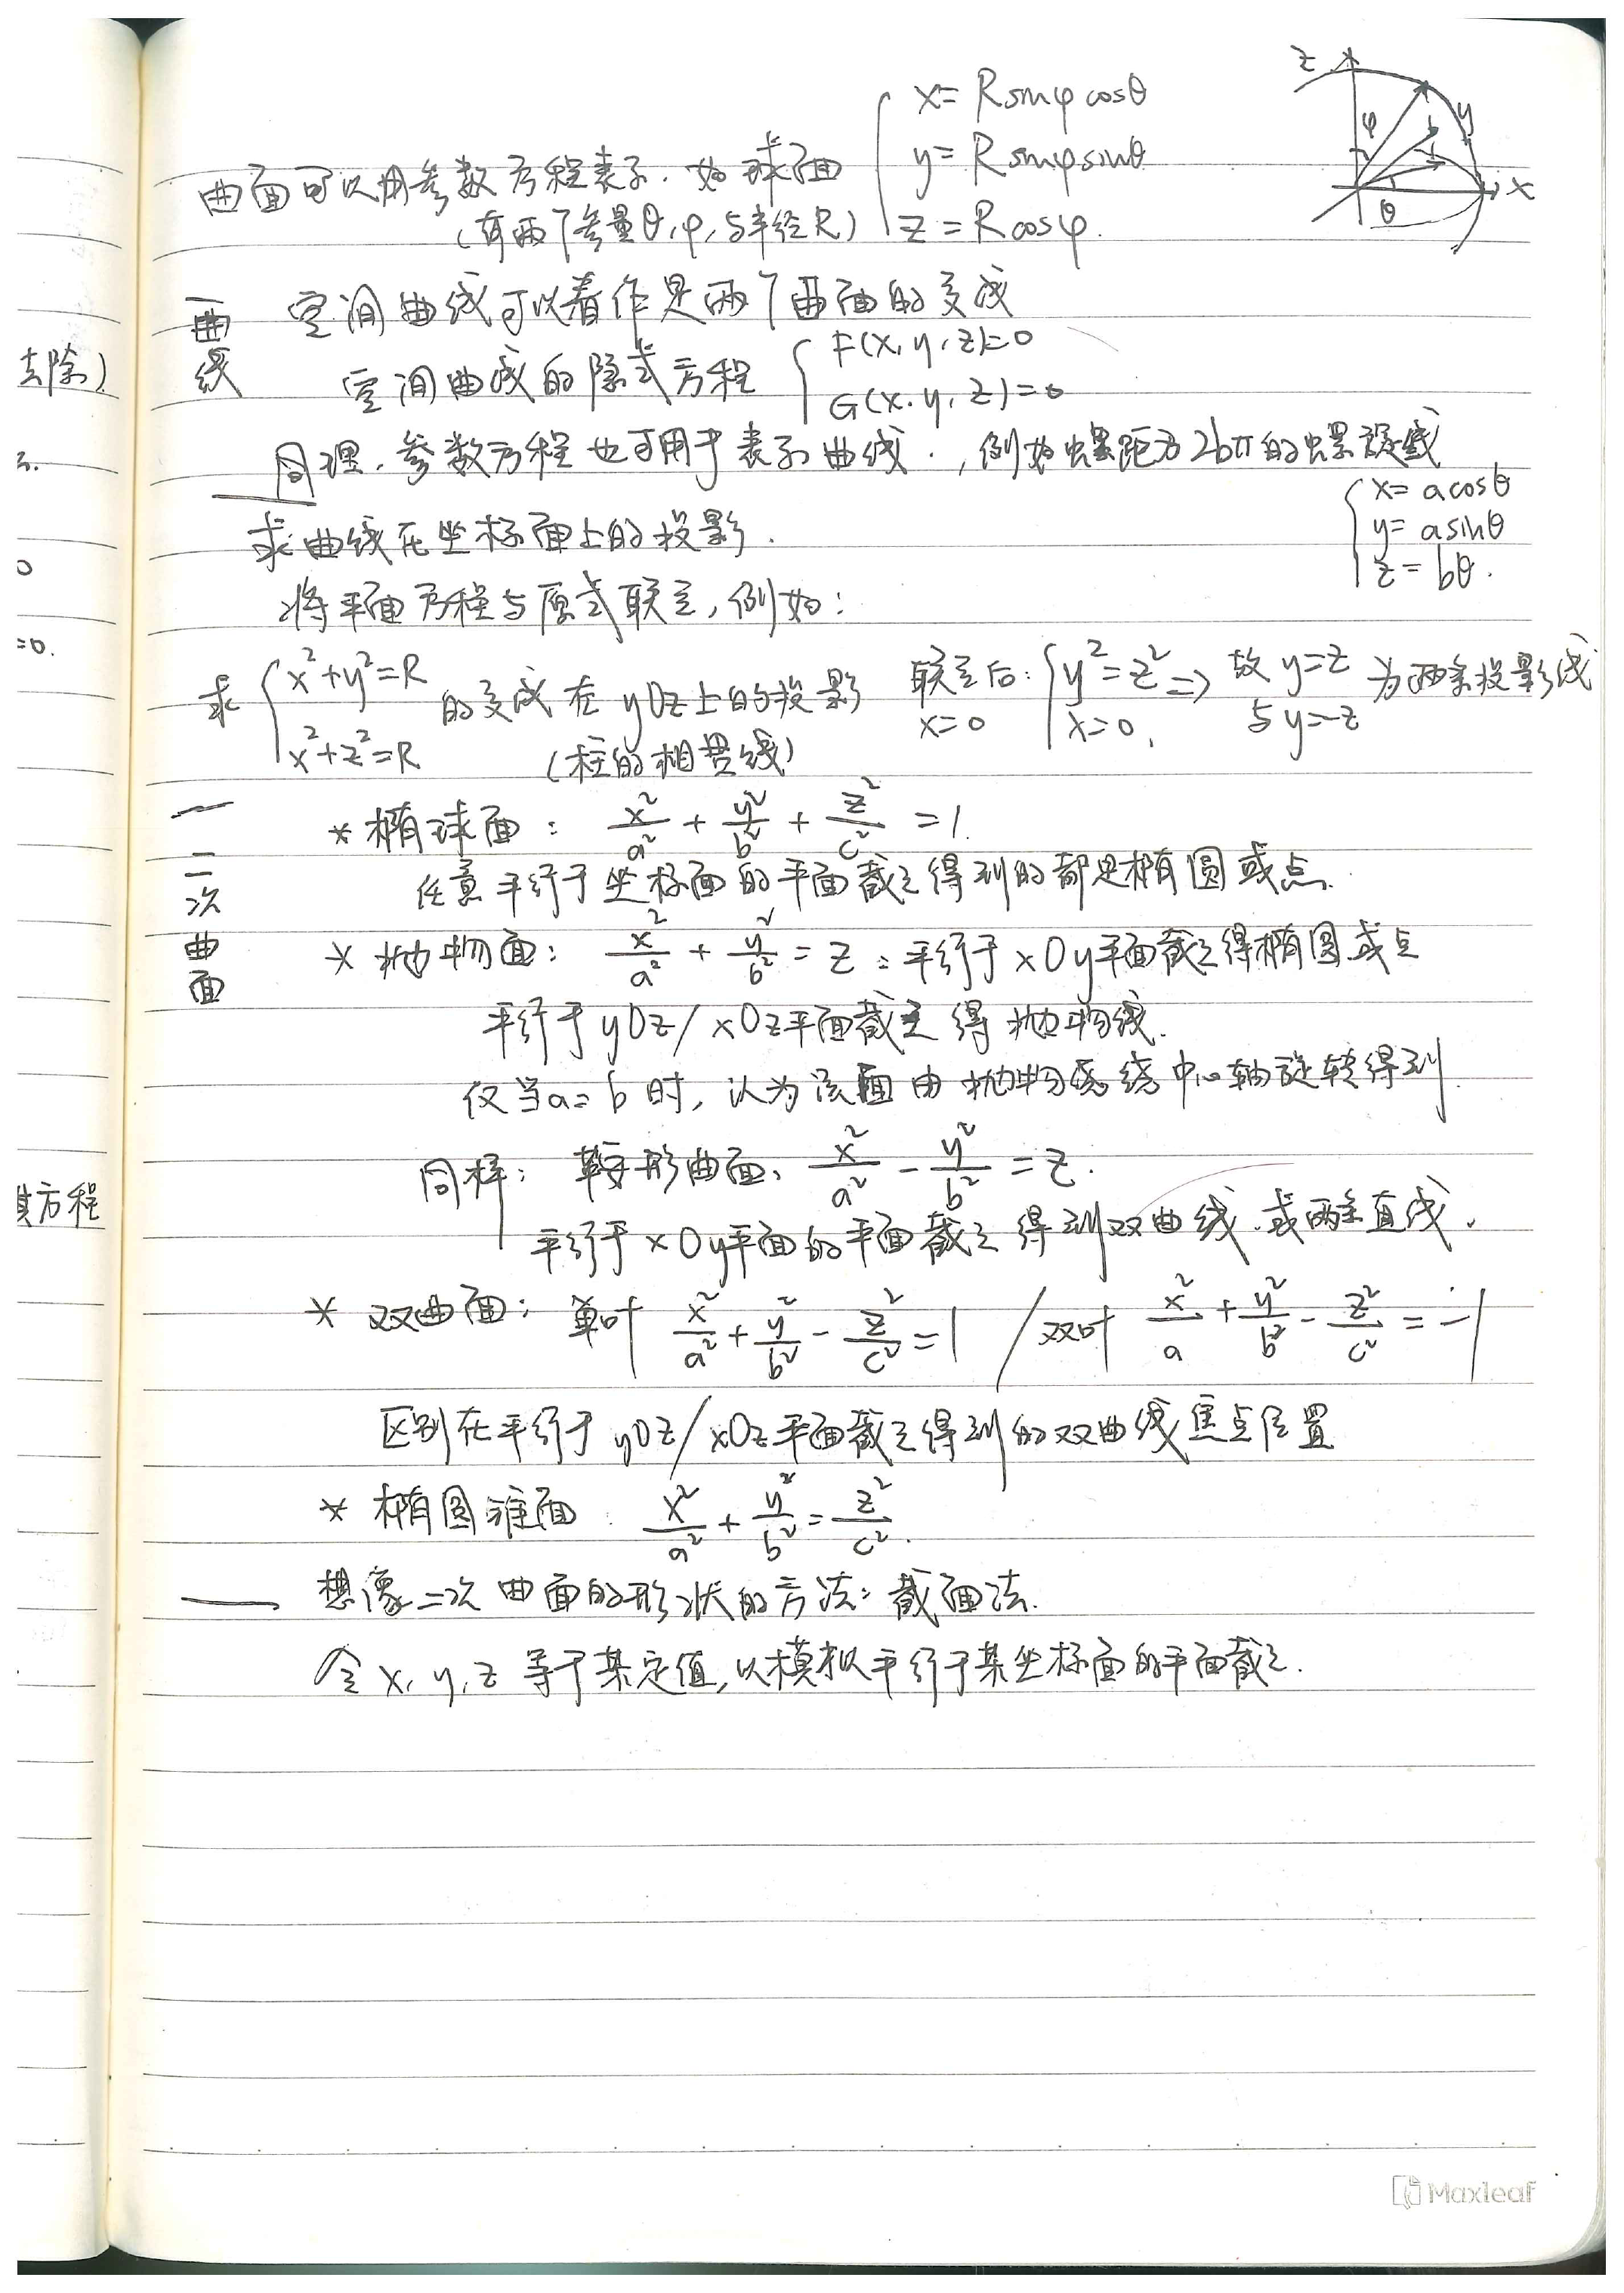 曲面可以用参数方程表示. 如球面 { x= R sinφ cosθ
y= R sinφ sinθ
z = R cosφ.
(有两个参量θ,φ,与半径R)
z
φ
y
x
θ
曲线
空间曲线可以看作是两个曲面的交线
空间曲线的隐式方程 { F(x, y, z)=0
G(x, y, z)=0
同理, 参数方程也可用于表示曲线. , 例如螺距为2bπ的螺旋线
{ x= acosθ
y= asinθ
z= bθ.
求曲线在坐标面上的投影.
将平面方程与原式联立, 例如:
求 { x²+y²=R
x²+z²=R 的交线在yOz上的投影 联立后: x=0 { y²=z²
x=0, => 故 y=z 与y=-z 为两条投影线
(柱的相贯线)
二次曲面
* 椭球面: x²/a² + y²/b² + z²/c² =1.
任意平行于坐标面的平面截之得到的都是椭圆或点.
* 抛物面: x²/a² + y²/b² = z : 平行于xOy平面截之得椭圆或点
平行于yOz/xOz平面截之得抛物线.
仅当a=b时, 认为该面由抛物线绕中心轴旋转得到.
同样: 鞍形曲面, x²/a² - y²/b² = z.
平行于xOy平面的平面截之得到双曲线.或两条直线.
* 双曲面: 单叶 x²/a² + y²/b² - z²/c² =1 / 双叶 x²/a + y²/b² - z²/c² = -1
区别在平行于yOz/xOz平面截之得到的双曲线焦点位置
* 椭圆锥面: x²/a² + y²/b² = z²/c².
想像二次曲面的形状的方法: 截面法.
令x, y, z 等于某定值, 以模拟平行于某坐标面的平面截之.
去除)
0
=0.
方程
Maxleaf